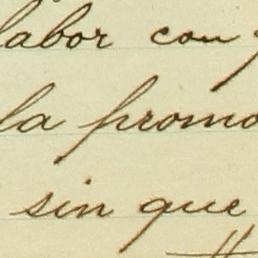 labor con
la promo
sin que